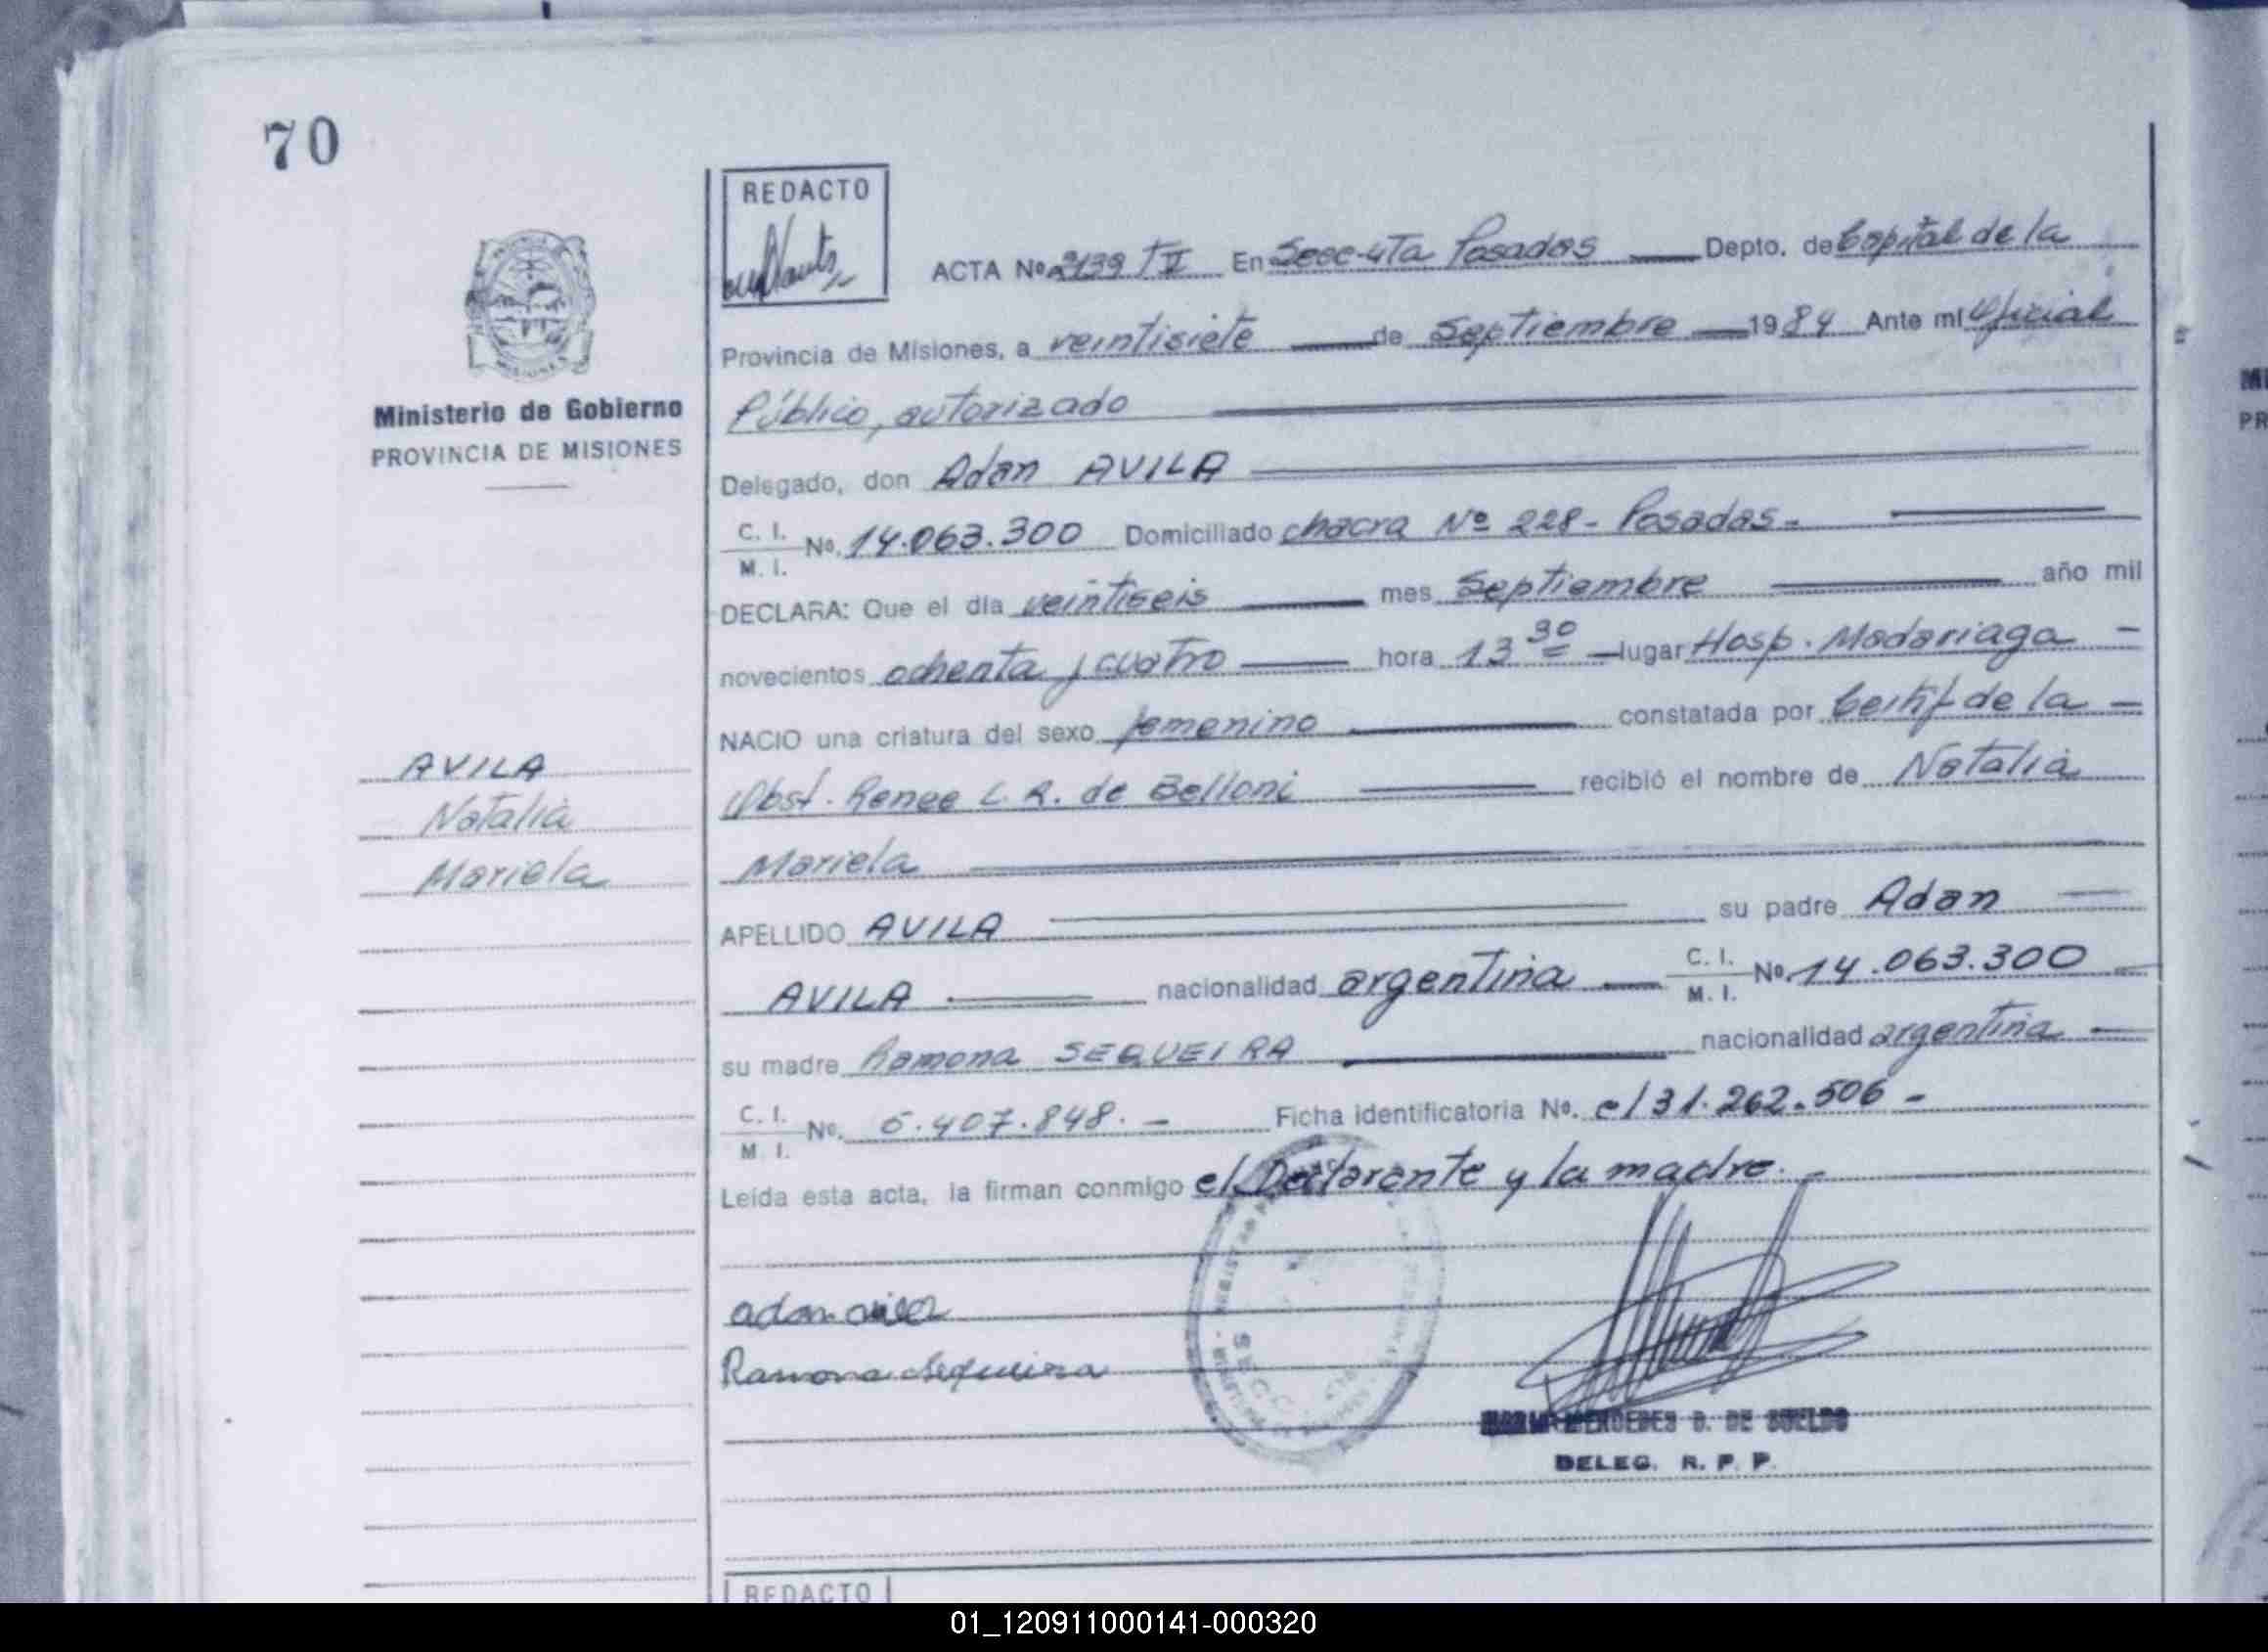 70
REDACTO
ACTA Nº 2139 T V En Secc-4Ta Posadas Depto. de Capital de la
Provincia de Misiones, a veintisiete de Septiembre 1984 Ante mi Oficial
Público, autorizado
Ministerio de Gobierno
PROVINCIA DE MISIONES
Delegado, don Adan AVILA
C. I. Nº. 14.063.300 Domiciliado chacra Nº 228- Posadas.-
M. I.
DECLARA: Que el día veintiseis mes Septiembre año mil
novecientos ochenta y cuatro hora 13 30 lugar Hosp. Madariaga -
NACIO una criatura del sexo femenino constatada por Certif de la -
AVILA
Natalia
Mariela
Obst. Renee L. R. de Belloni recibió el nombre de Natalia
Mariela
APELLIDO AVILA su padre Adan
AVILA nacionalidad argentina C. I. Nº. 14.063.300
M. I.
su madre Ramona SEQUEIRA nacionalidad argentina
C. I. Nº. 6.407.848.- Ficha identificatoria Nº. el 31.262.506 -
M. I.
Leída esta acta, la firman conmigo el Declarante y la madre.-
adan avila
Ramona Sequeira
SECC
MARIA MERCEDES D. DE SUELDO
DELEG. R. P. P.
REDACTO
01_120911000141-000320